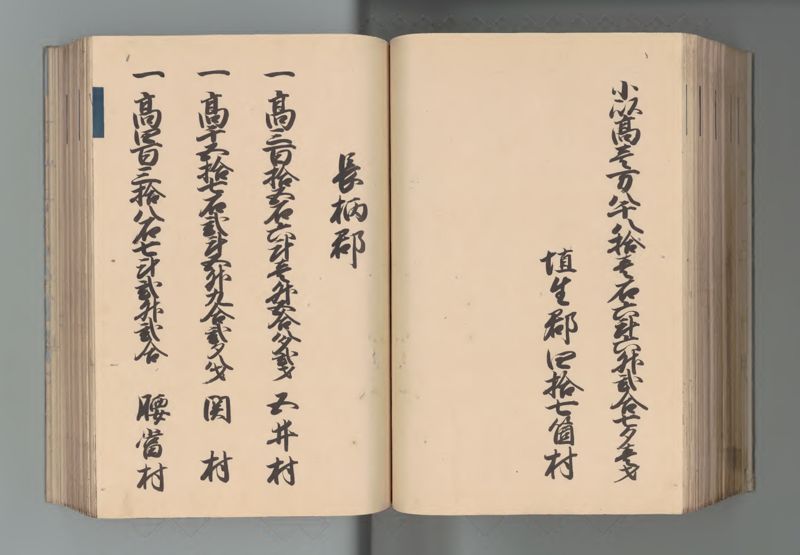 小以高壱万八千八拾壱石六斗六升弐合七夕壱才
埴生郡四拾七箇村
長柄郡
一高三百拾五石六斗壱升五合八夕弐才 五井村
一高千五拾七石弐斗五升九合弐夕八才 関村
一高四百三拾八石七斗弐升弐合 腰當村